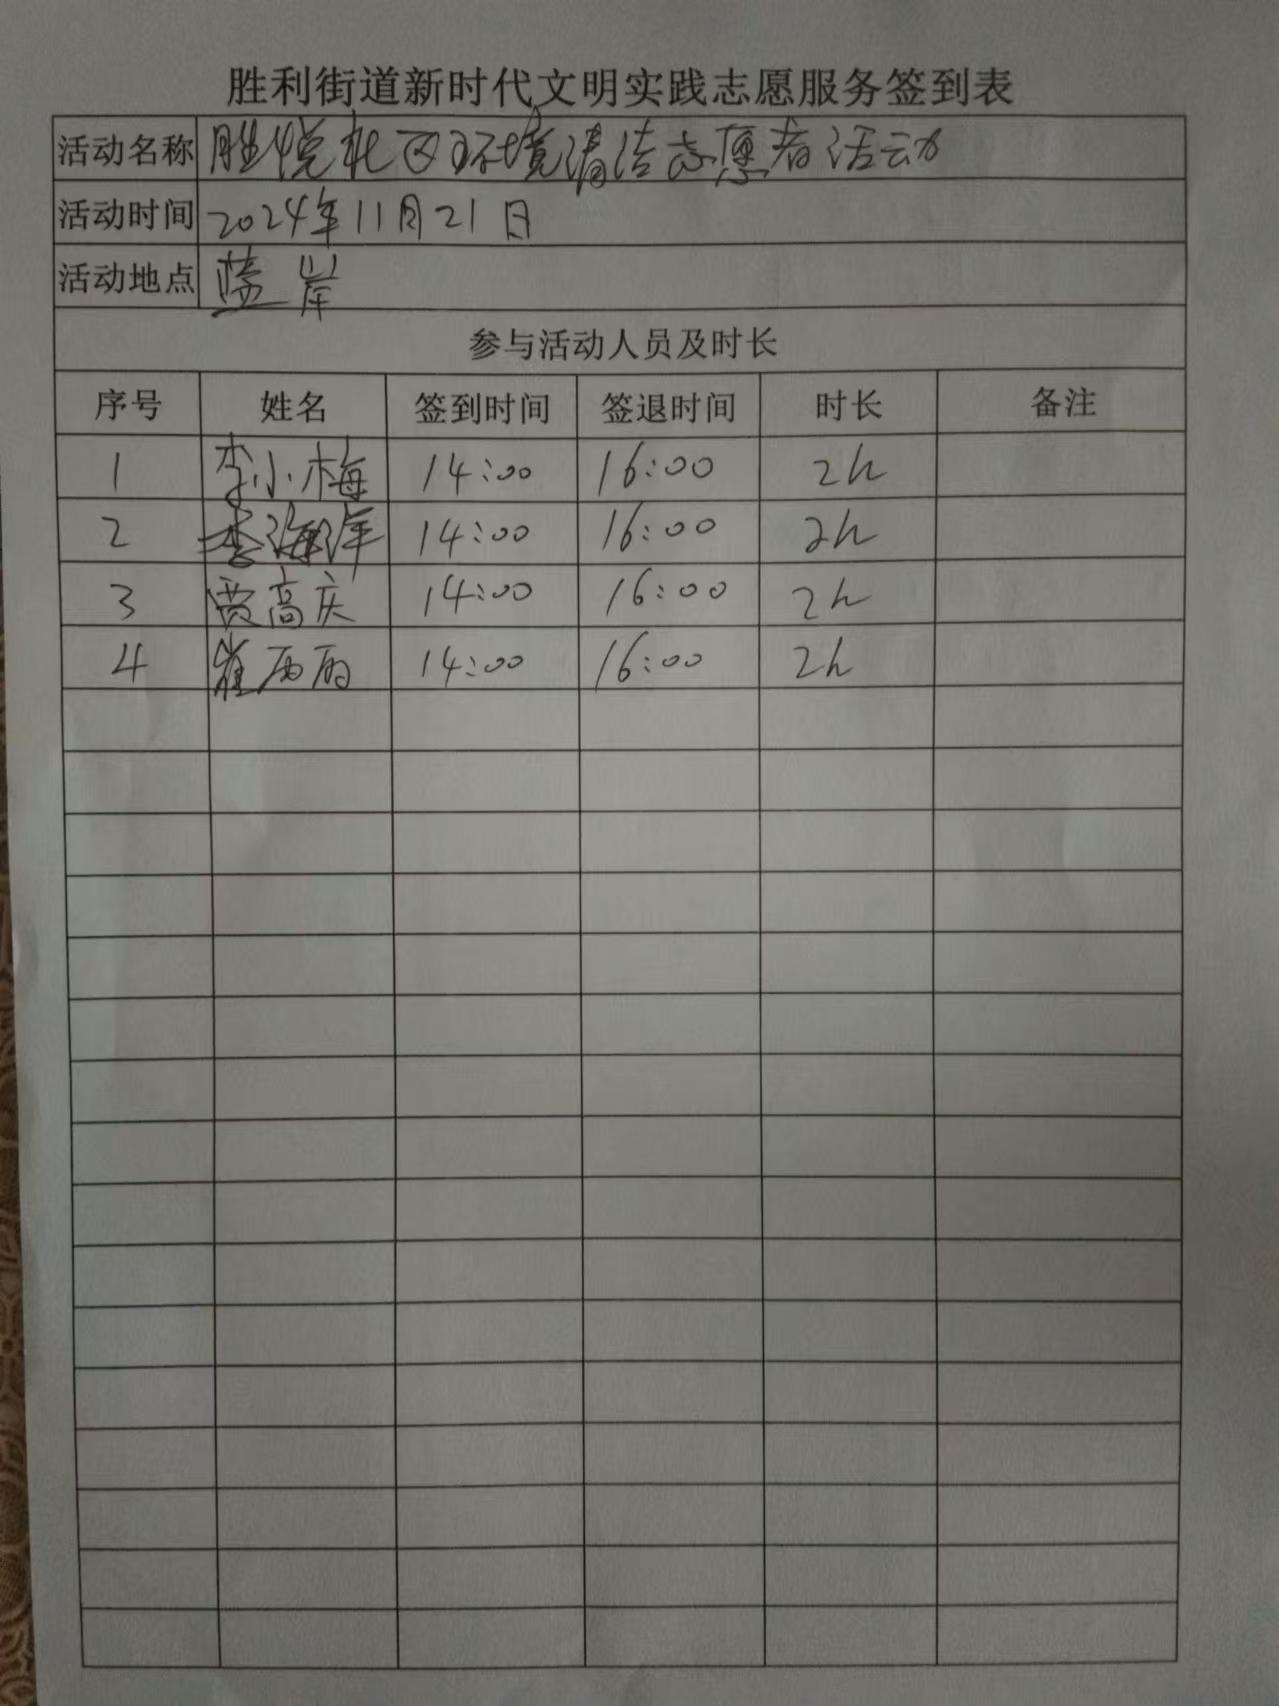 胜利街道新时代文明实践志愿服务签到表
活动名称 胜悦社区环境清洁志愿者活动
活动时间 2024年11月21日
活动地点 蓝岸
参与活动人员及时长
序号 姓名 签到时间 签退时间 时长 备注
1 李小梅 14:00 16:00 2h
2 李海洋 14:00 16:00 2h
3 贾高庆 14:00 16:00 2h
4 崔雨 14:00 16:00 2h